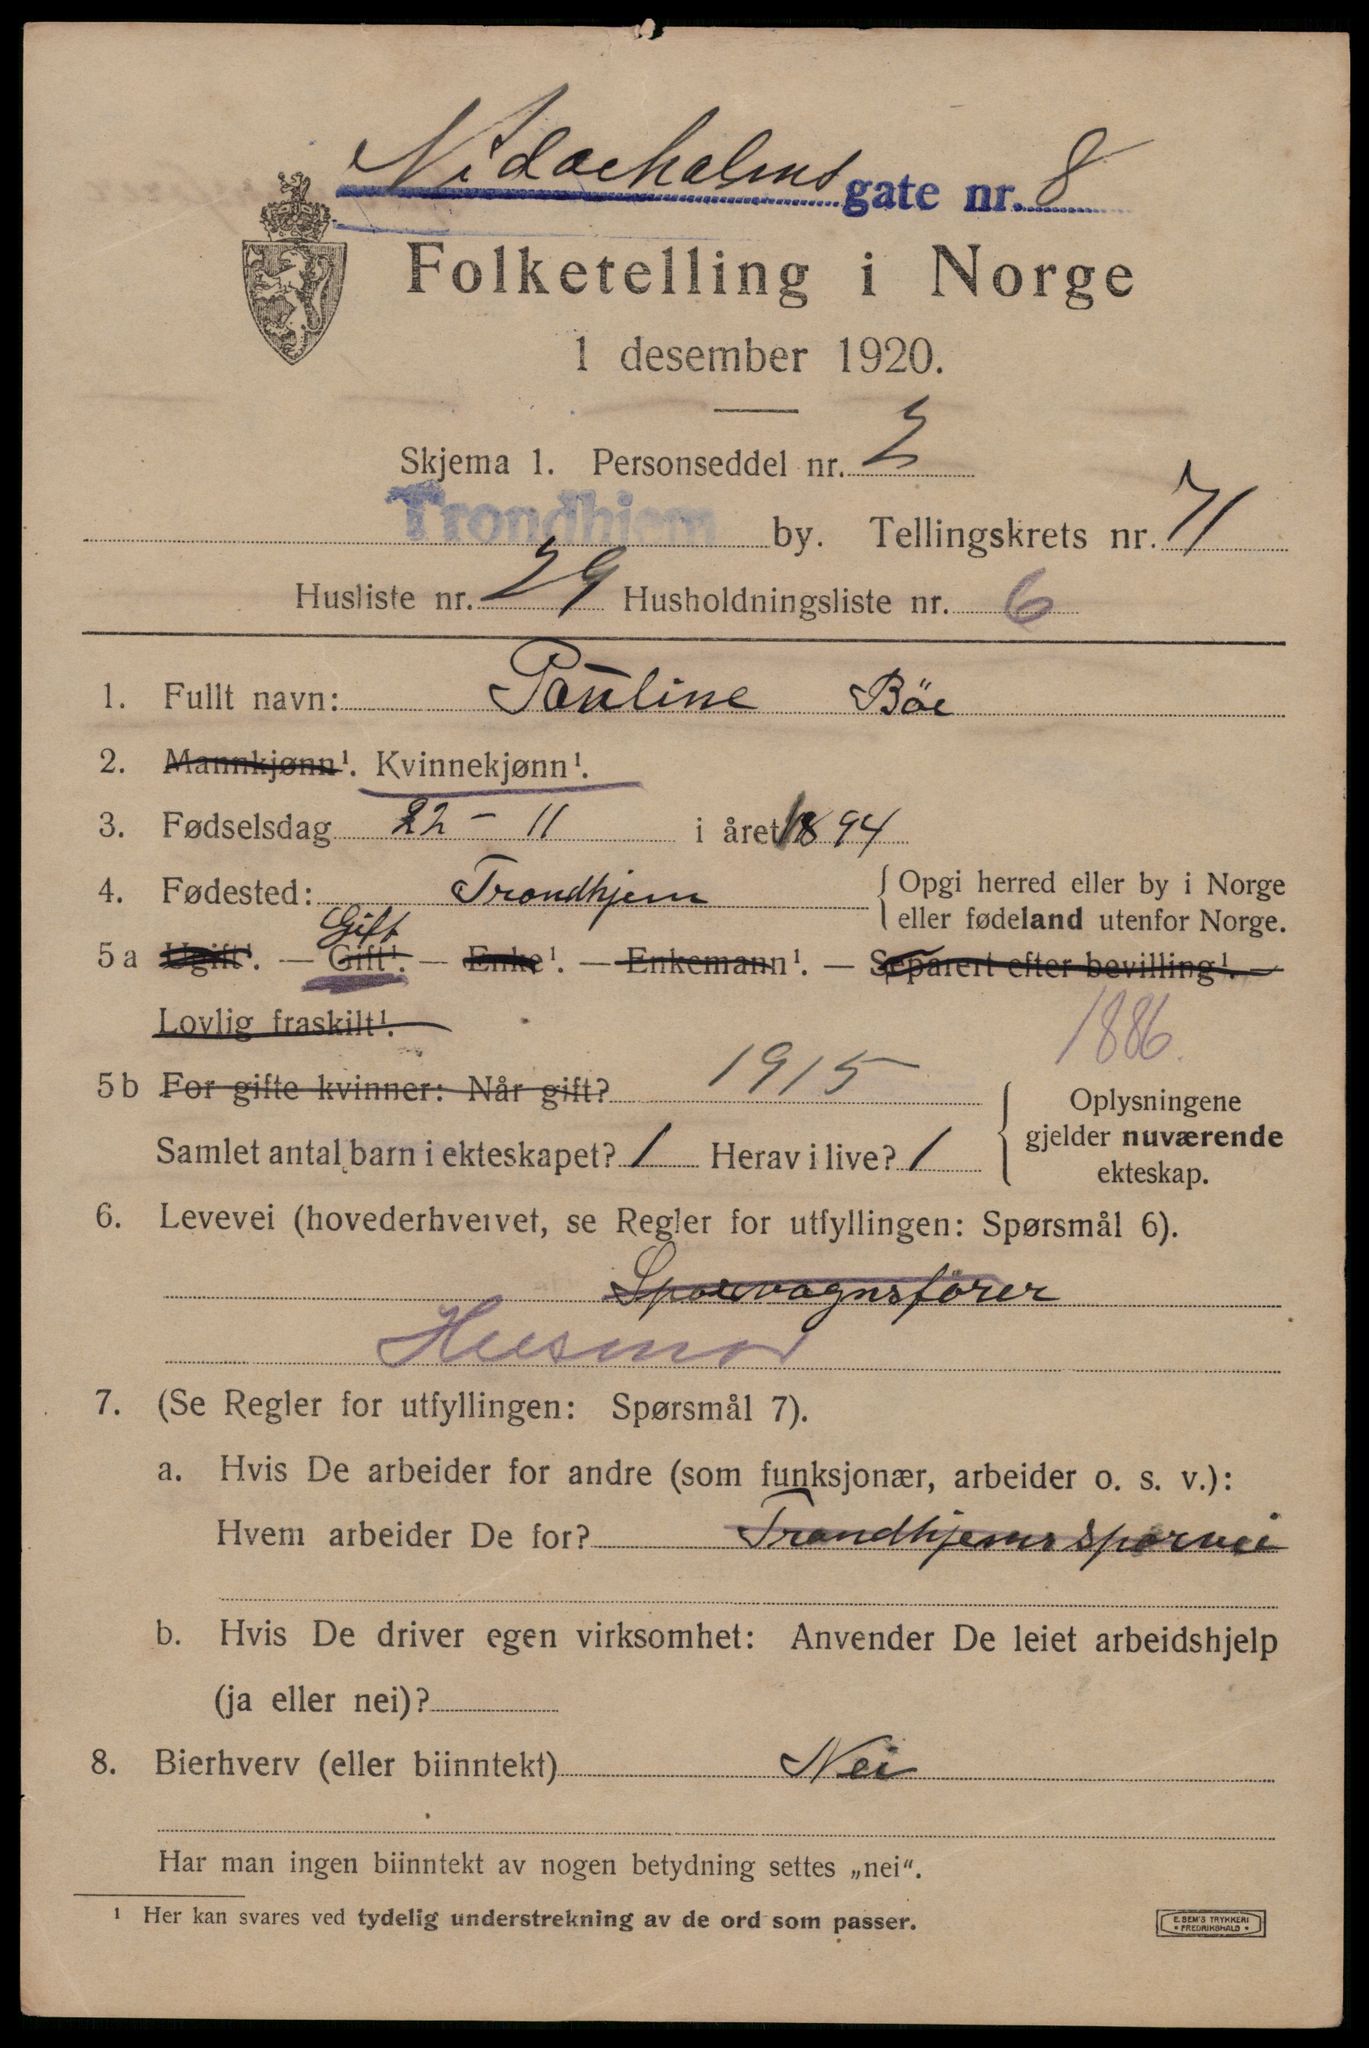 Nidareholms gate nr. 8
Folketelling i Norge
1 desember 1920.
Skjema 1. Personseddel nr. 2
Trondhjem by. Tellingskrets nr. 71
Husliste nr. 29 Husholdningsliste nr. 6
1. Fullt navn: Pauline Böe
2. Mannkjønn¹. Kvinnekjønn¹.
3. Fødselsdag 22 - 11 i året 1894
4. Fødested: Trondhjem { Opgi herred eller by i Norge
eller fødeland utenfor Norge.
Gift
5 a Ugift¹. — Gift¹. — Enke¹. — Enkemann¹. — Separert efter bevilling¹. —
Lovlig fraskilt¹.
1886.
5 b For gifte kvinner: Når gift? 1915
Oplysningene
gjelder nuværende
ekteskap.
Samlet antal barn i ekteskapet? 1 Herav i live? 1
6. Levevei (hovederhvervet, se Regler for utfyllingen: Spørsmål 6).
Sporvognsförer
Husmor
7. (Se Regler for utfyllingen: Spørsmål 7).
a. Hvis De arbeider for andre (som funksjonær, arbeider o. s. v.):
Hvem arbeider De for? Trondhjems sporvei
b. Hvis De driver egen virksomhet: Anvender De leiet arbeidshjelp
(ja eller nei)?
8. Bierhverv (eller biinntekt) Nei
Har man ingen biinntekt av nogen betydning settes „nei“.
¹ Her kan svares ved tydelig understrekning av de ord som passer.
E. SEM'S TRYKKERI
FREDRIKSHALD